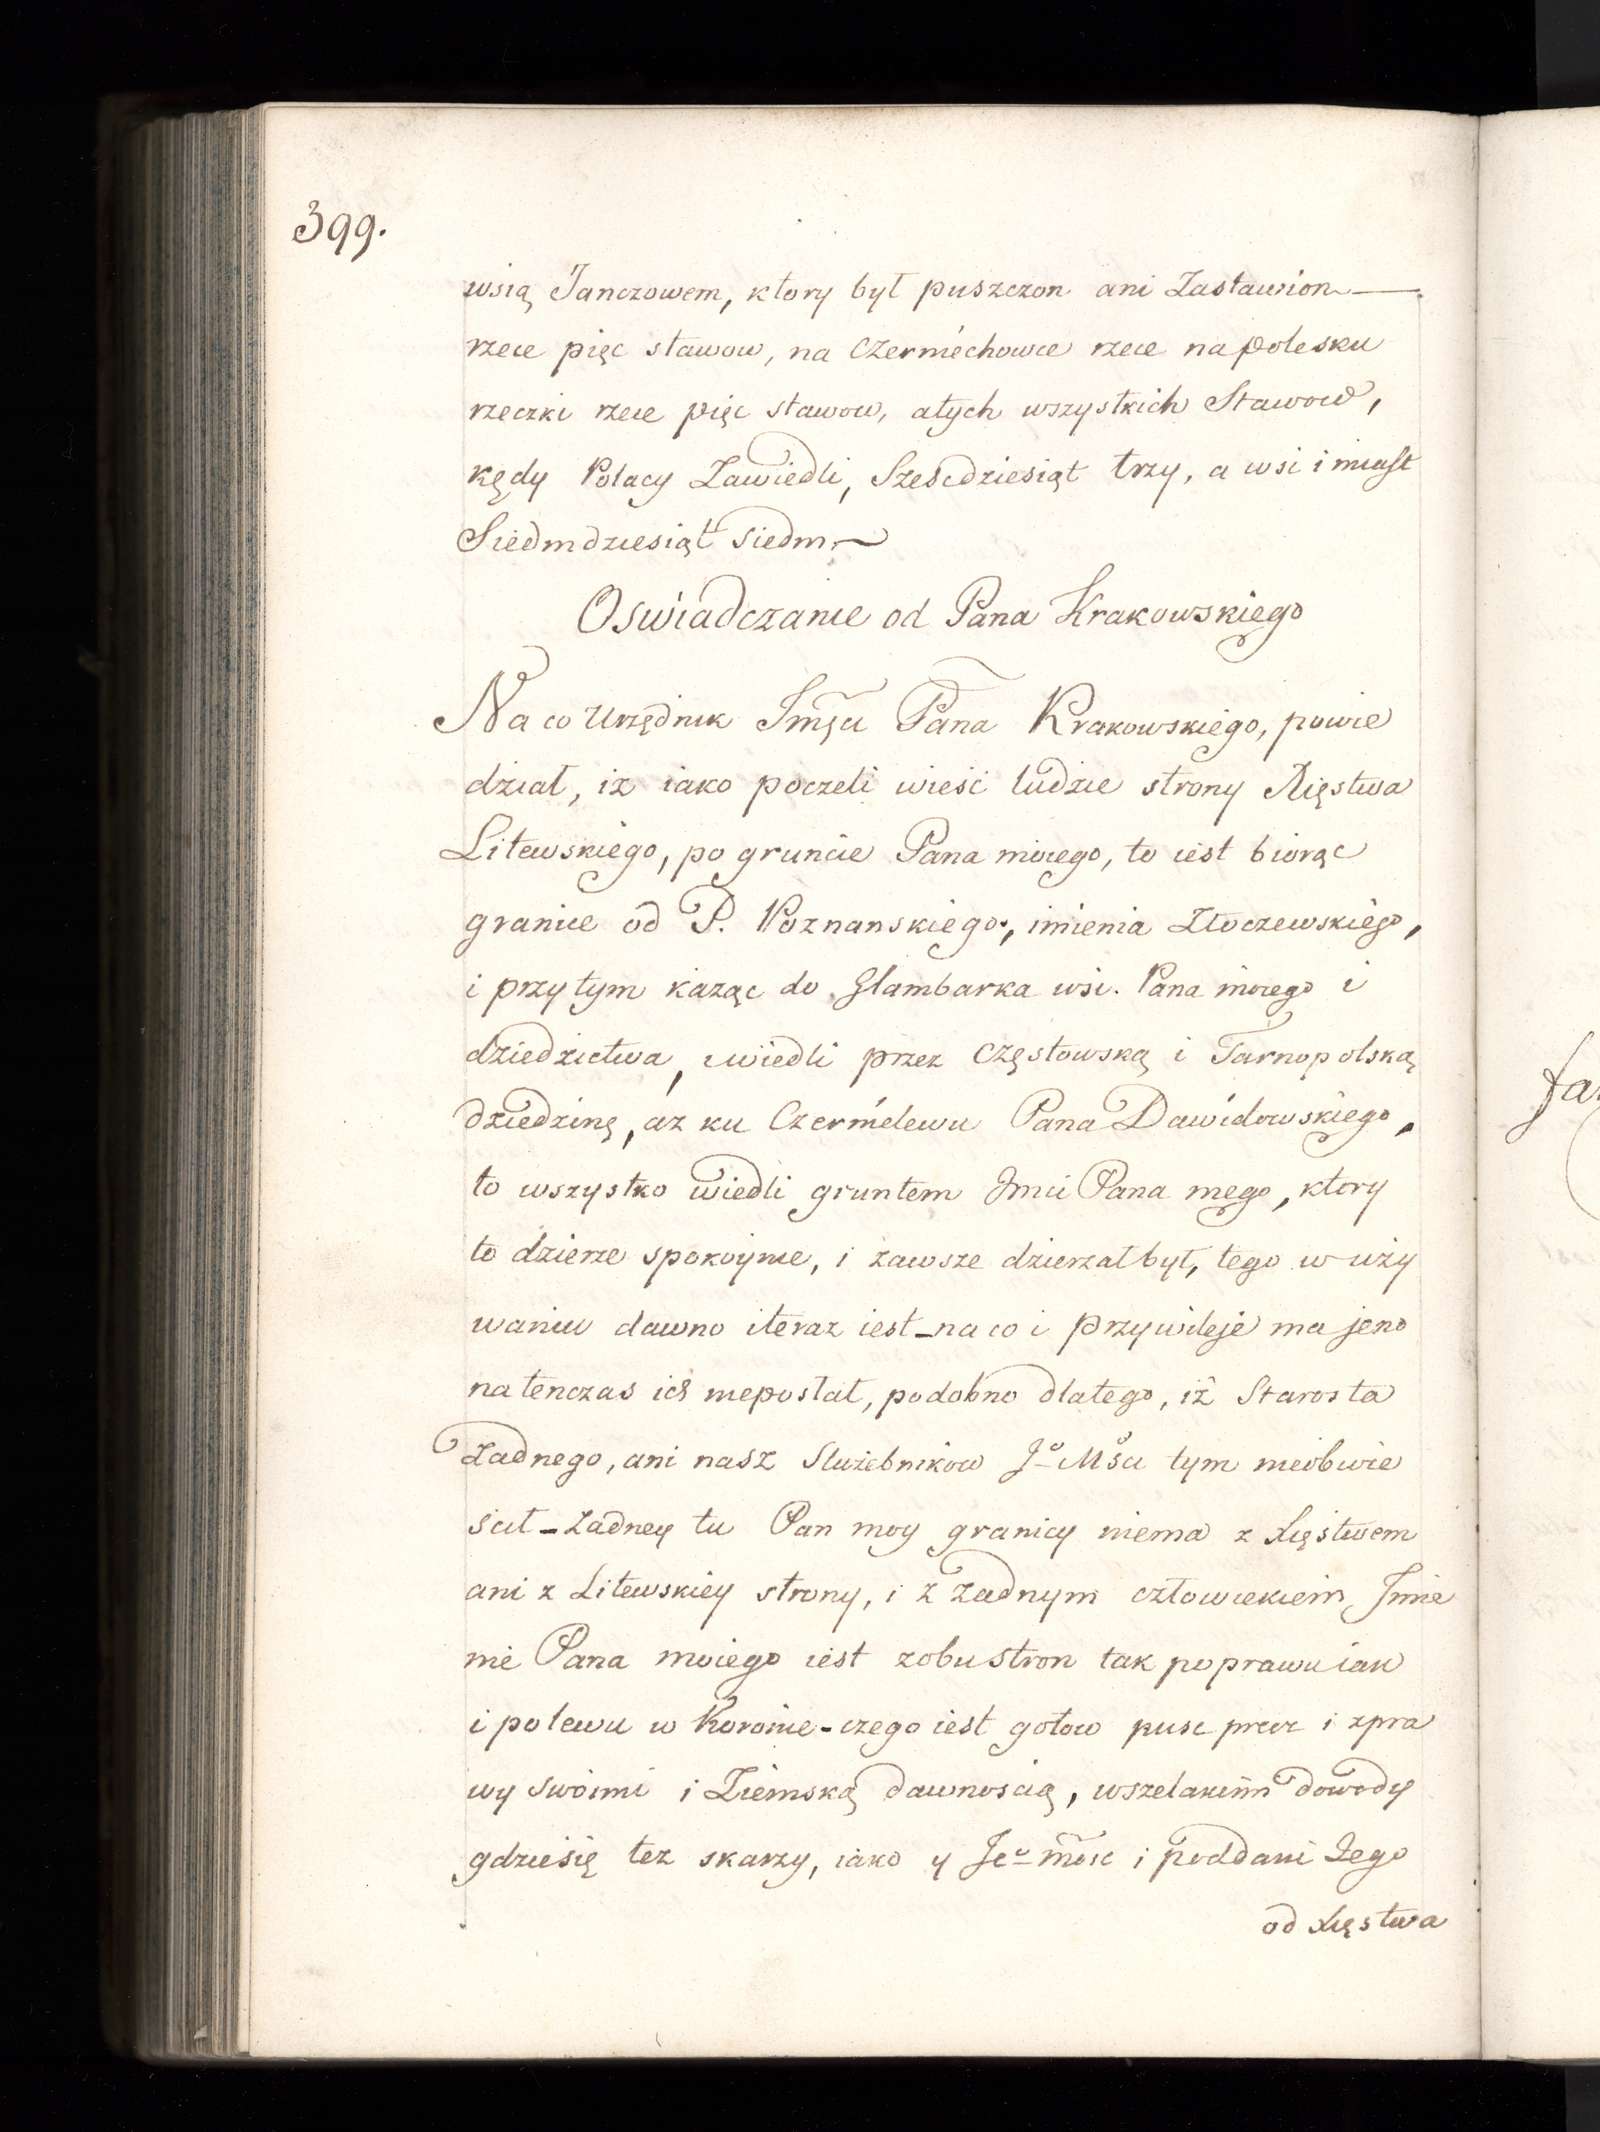 399.
wsią Janczowem, ktory był puszczon ani Zastawion—
rzece pięc stawow, na Czermechowce rzece na polesku
rzeczki rzece pięc stawow, atych wszystkich Stawow,
kędy Polacy Zawiedli, Szescdziesiąt trzy, a wsi i miast
Siedmdziesiąt Siedm ~
Oswiadczanie od Pana Krakowskiego
Na co Urzędnik Pana Krakowskiego, powie
dział, iz iako poczeli wieść ludzie strony Xięstwa
Litewskiego, po gruncie Pana moiego, to iest biorąc
granice od P. Poznanskiego, imienia Złoczewskiego,
i przytym każąc do Glambarka wsi. Pana moiego i
dziedzictwa, wiedli przez Częstowską i Tarnopolską
dziedzinę, az ku Czermelewu Pana Dawidowskiego,
to wszystko wiedli gruntem Jmci Pana mego, ktory
to dzierze spokoynie, i zawsze dzierzał był, tego w uży
waniu dawno iteraz iest – na co i przywileje ma jeno
natenczas ich nieposłał, podobno dlatego, iż Starosta
Zadnego, ani nasz Służebnikow Jº Mści tym nieobwie
scił – Zadney tu Pan moy granicy niema z Xięstwem
ani z Litewskiey strony, i z Zadnym człowiekiem, Jmie
nie Pana moiego iest zobustron tak poprawu iak
i polewu w Koronie – czego iest gotow pusc precz i zpra
wy Swoimi i Ziemską dawnoscią, wszelakiim dowody
gdziesię tez skarzy, iako y Jeº mosc i poddani Jego
od Xięstwa
fa